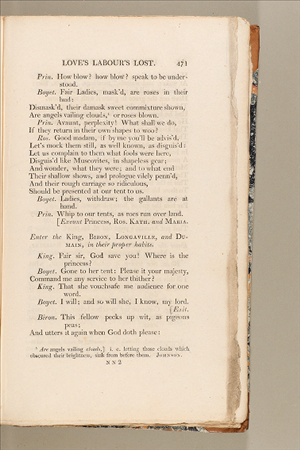 LOVE'S LABOUR'S LOST. 471
Prin. How blow? how blow? speak to be under-
stood.
Boyet. Fair Ladies, mask'd, are roses in their
bud:
Dismask'd, their damask sweet commixture shown,
Are angels vailing clouds,⁸ or roses blown.
Prin. Avaunt, perplexity! What shall we do,
If they return in their own shapes to woo?
Ros. Good madam, if by me you'll be advis'd,
Let's mock them still, as well known, as disguis'd:
Let us complain to them what fools were here,
Disguis'd like Muscovites, in shapeless gear;
And wonder, what they were; and to what end
Their shallow shows, and prologue vilely penn'd,
And their rough carriage so ridiculous,
Should be presented at our tent to us.
Boyet. Ladies, withdraw; the gallants are at
hand.
Prin. Whip to our tents, as roes run over land.
[Exeunt Princess, Ros. Kath. and Maria.
Enter the King, Biron, Longaville, and Du-
main, in their proper habits.
King. Fair sir, God save you! Where is the
princess?
Boyet. Gone to her tent: Please it your majesty,
Command me any service to her thither?
King. That she vouchsafe me audience for one
word.
Boyet. I will; and so will she, I know, my lord.
[Exit.
Biron. This fellow pecks up wit, as pigeons
peas;
And utters it again when God doth please:
⁸ Are angels vailing clouds,] i. e. letting those clouds which
obscured their brightness, sink from before them. Johnson.
N N 2